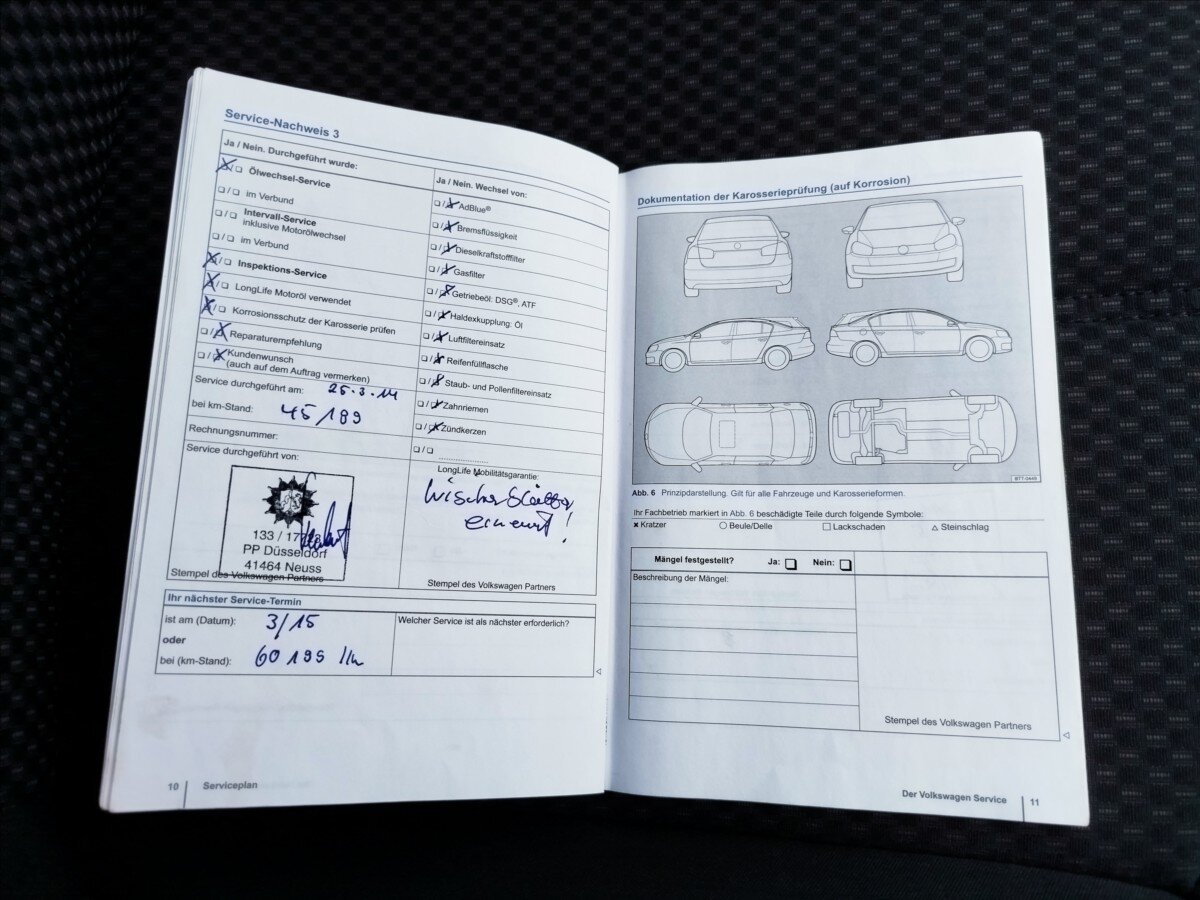 Service-Nachweis 3
Ja / Nein. Durchgeführt wurde:
Ölwechsel-Service
im Verbund
Intervall-Service
inklusive Motorölwechsel
im Verbund
Inspektions-Service
LongLife Motoröl verwendet
Korrosionsschutz der Karosserie prüfen
Reparaturempfehlung
Kundenwunsch
(auch auf dem Auftrag vermerken)
Service durchgeführt am: 25.3.14
bei km-Stand: 45/199
Rechnungsnummer:
Service durchgeführt von:
133 /
PP Düsseldorf
41464 Neuss
Stempel des Volkswagen Partners
Ja / Nein. Wechsel von:
AdBlue®
Bremsflüssigkeit
Dieselkraftstofffilter
Gasfilter
Getriebeöl: DSG®, ATF
Haldexkupplung: Öl
Luftfiltereinsatz
Reifenfüllflasche
Staub- und Pollenfiltereinsatz
Zahnriemen
Zündkerzen
LongLife Mobilitätsgarantie:
Wischerblätter
erneuert!
Stempel des Volkswagen Partners
Ihr nächster Service-Termin
ist am (Datum): 3/15
oder
bei (km-Stand): 60 199 km
Welcher Service ist als nächster erforderlich?
10 Serviceplan
Dokumentation der Karosserieprüfung (auf Korrosion)
BTT-0449
Abb. 6 Prinzipdarstellung. Gilt für alle Fahrzeuge und Karosserieformen.
Ihr Fachbetrieb markiert in Abb. 6 beschädigte Teile durch folgende Symbole:
Kratzer Beule/Delle Lackschaden Steinschlag
Mängel festgestellt? Ja: Nein:
Beschreibung der Mängel:
Stempel des Volkswagen Partners
Der Volkswagen Service 11